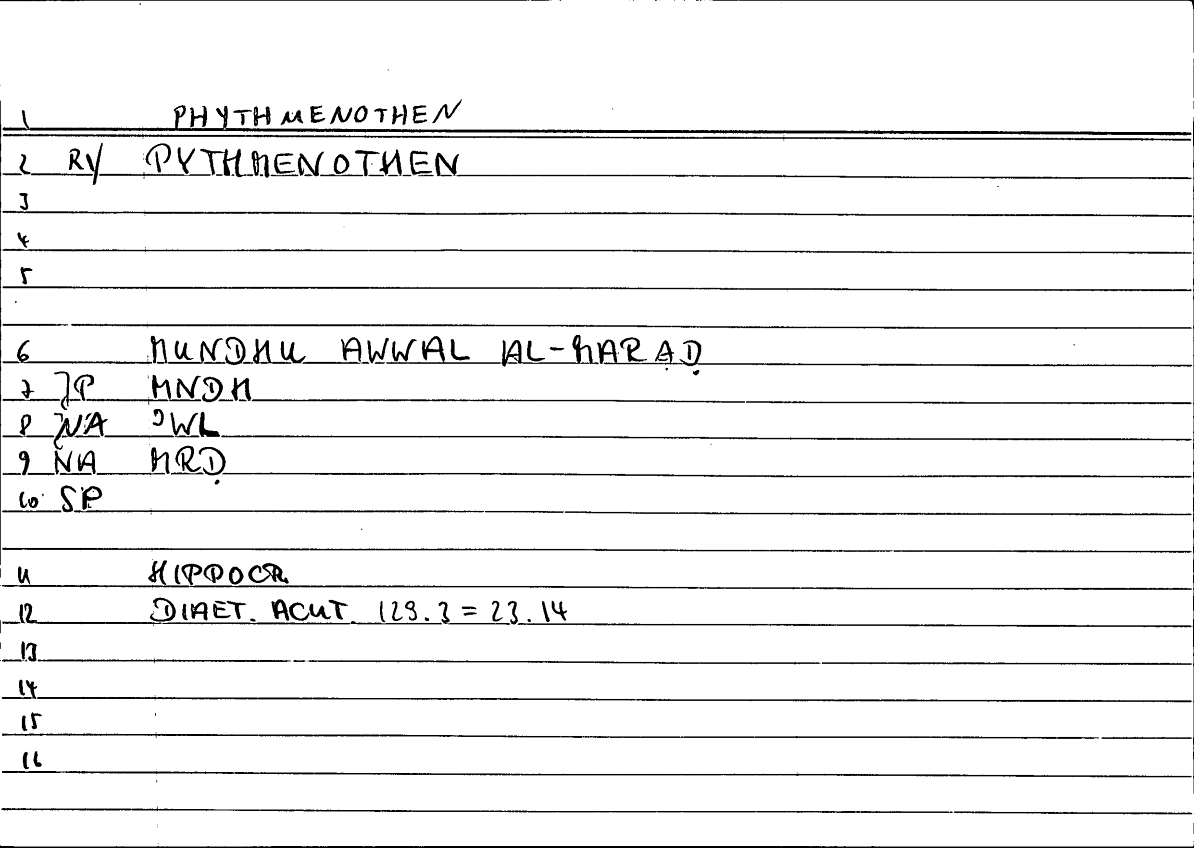 1 PHYTHMENOTHEN
2 RY PYTHMENOTHEN
3
4
5
6 MUNDHU AWWAL AL-MARAḌ
7 JP MNDH
8 NA ʾWL
9 NA MRḌ
10 SP
11 HIPPOCR.
12 DIAET. ACUT. 129.3 = 23.14
13
14
15
16